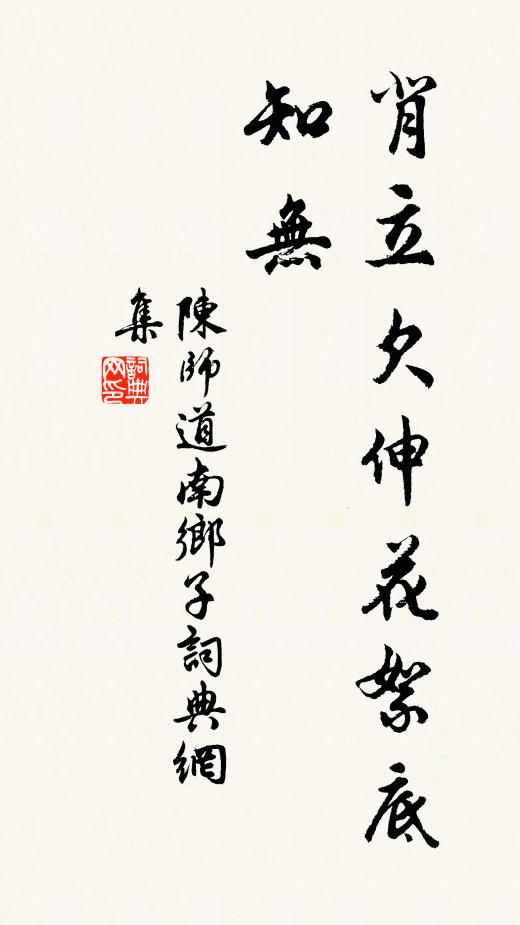 背立欠伸花絮底
知無
陳師道南鄉子詞典網
集
詞典
网印